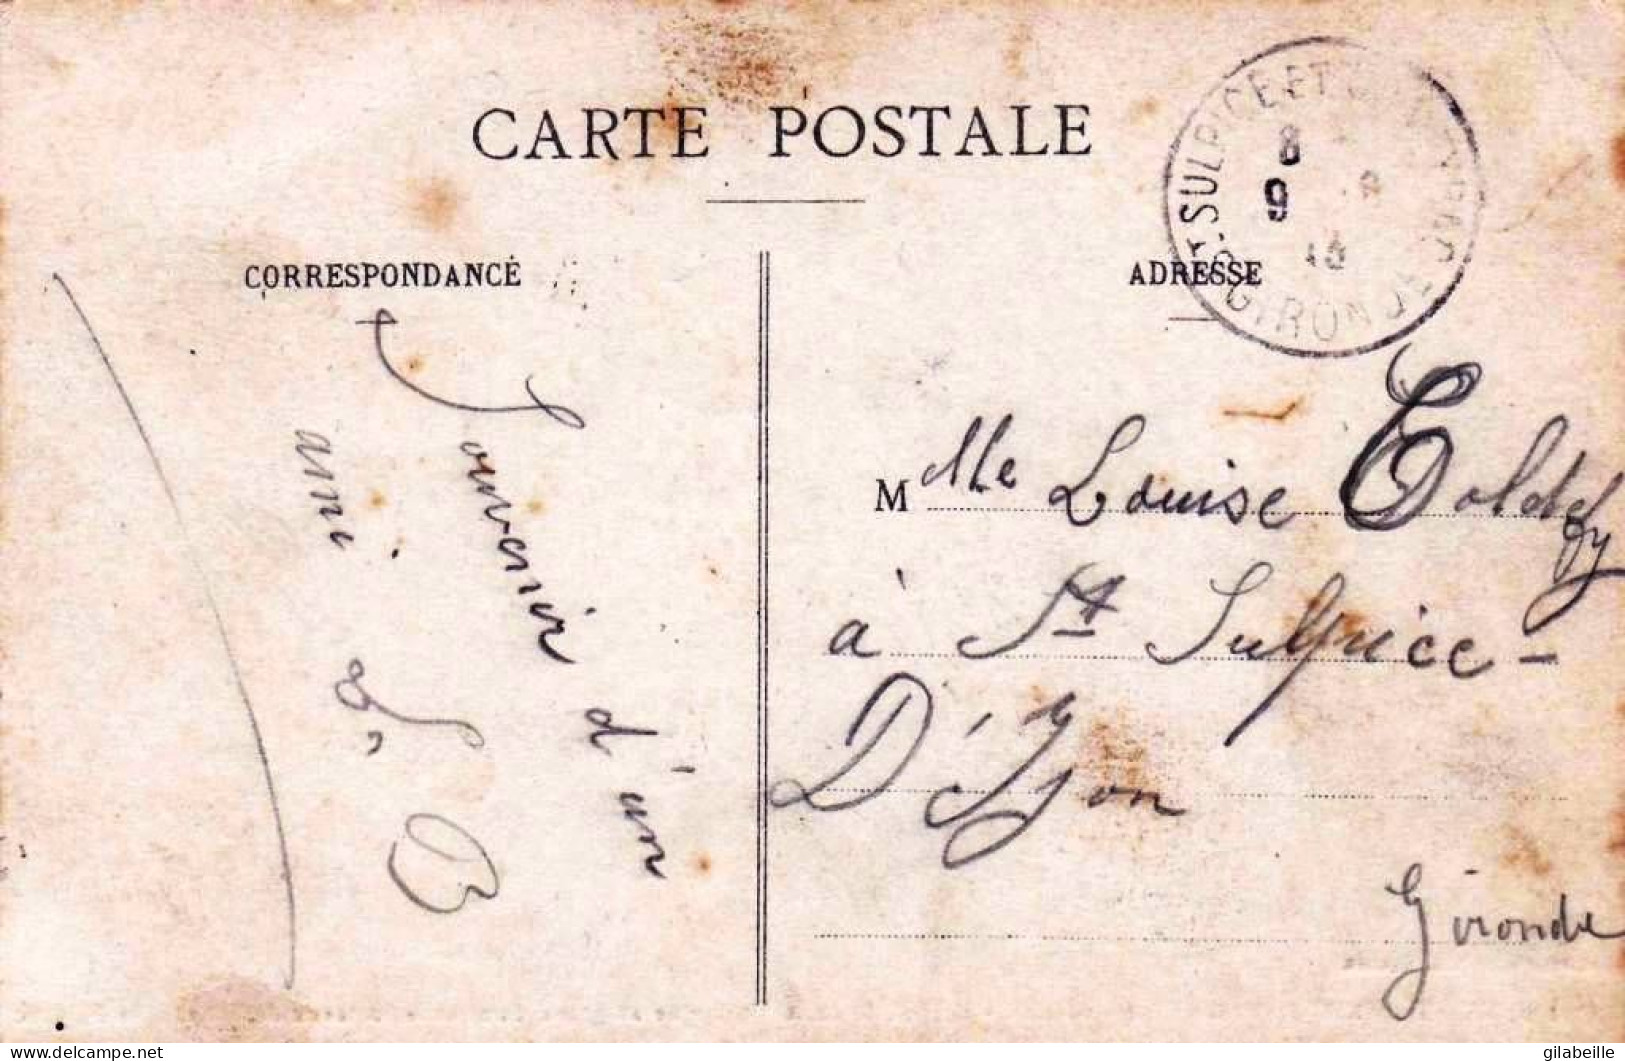 CARTE POSTALE
CORRESPONDANCE
ADRESSE
Souvenir d'un
ami
L. B
Mlle Louise
à St Sulpice -
D'Izon
Gironde
ST-SULPICE-ET-
8
9
GIRONDE
delcampe.net
gilabeille